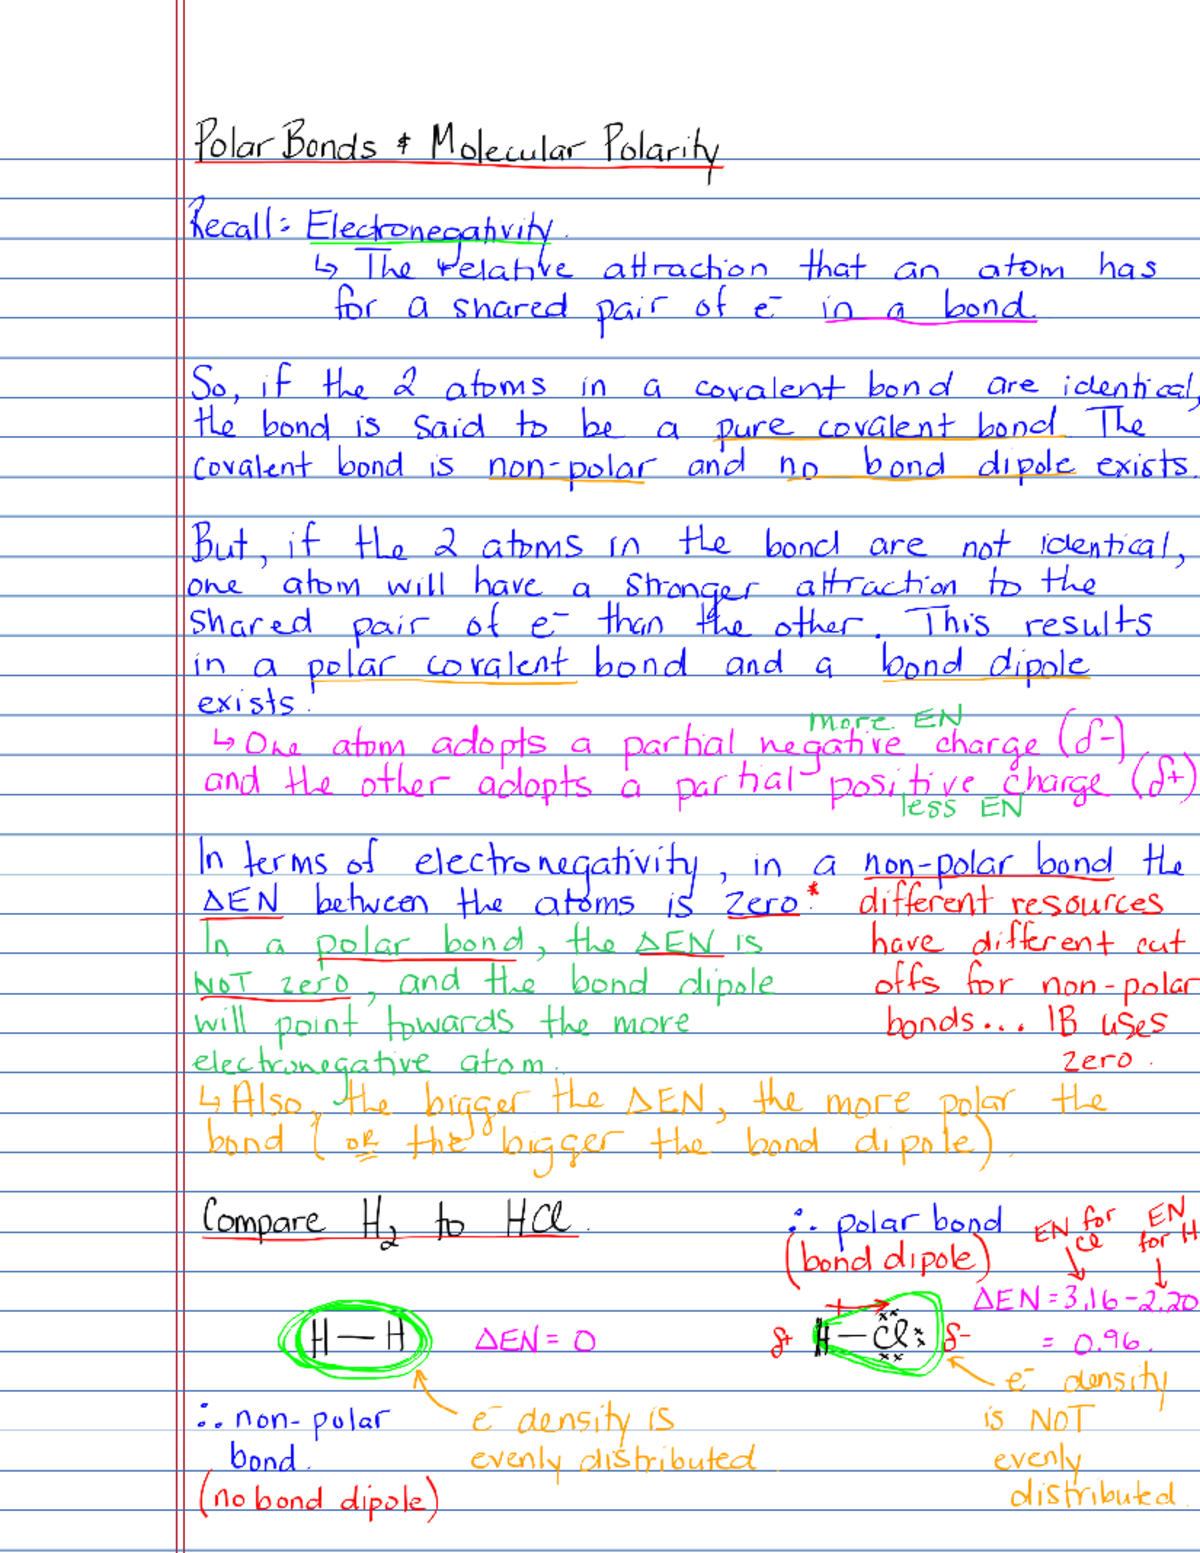 Polar Bonds & Molecular Polarity
Recall: Electronegativity.
↳ The relative attraction that an atom has
for a shared pair of e⁻ in a bond.
So, if the 2 atoms in a covalent bond are identical,
the bond is said to be a pure covalent bond. The
covalent bond is non-polar and no bond dipole exists.
But, if the 2 atoms in the bond are not identical,
one atom will have a stronger attraction to the
shared pair of e⁻ than the other. This results
in a polar covalent bond and a bond dipole
exists!
more EN
↳ One atom adopts a partial negative charge (δ-)
and the other adopts a partial positive charge (δ+)
less EN
In terms of electronegativity, in a non-polar bond the
ΔEN between the atoms is zero.*
In a polar bond, the ΔEN is
NOT zero, and the bond dipole
will point towards the more
electronegative atom.
different resources
have different cut
offs for non-polar
bonds... IB uses
zero.
↳ Also, the bigger the ΔEN, the more polar the
bond (or the bigger the bond dipole).
Compare H₂ to HCl.
H — H
ΔEN = 0
∴ non-polar
bond.
(no bond dipole)
e⁻ density is
evenly distributed
∴ polar bond
(bond dipole)
EN for Cl
EN for H
ΔEN = 3.16 - 2.20
= 0.96.
δ+ H — Cl δ-
e⁻ density
is NOT
evenly
distributed.